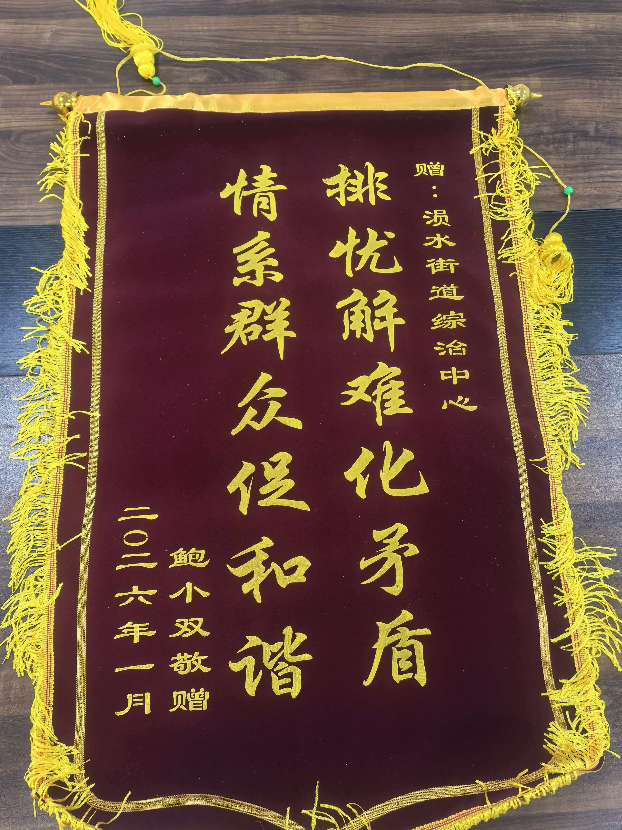 赠：涢水街道综治中心
排忧解难化矛盾
情系群众促和谐
鲍小双敬赠
二〇二六年一月